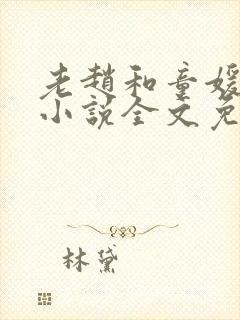 老赵和童媛
小说全文免
林黛